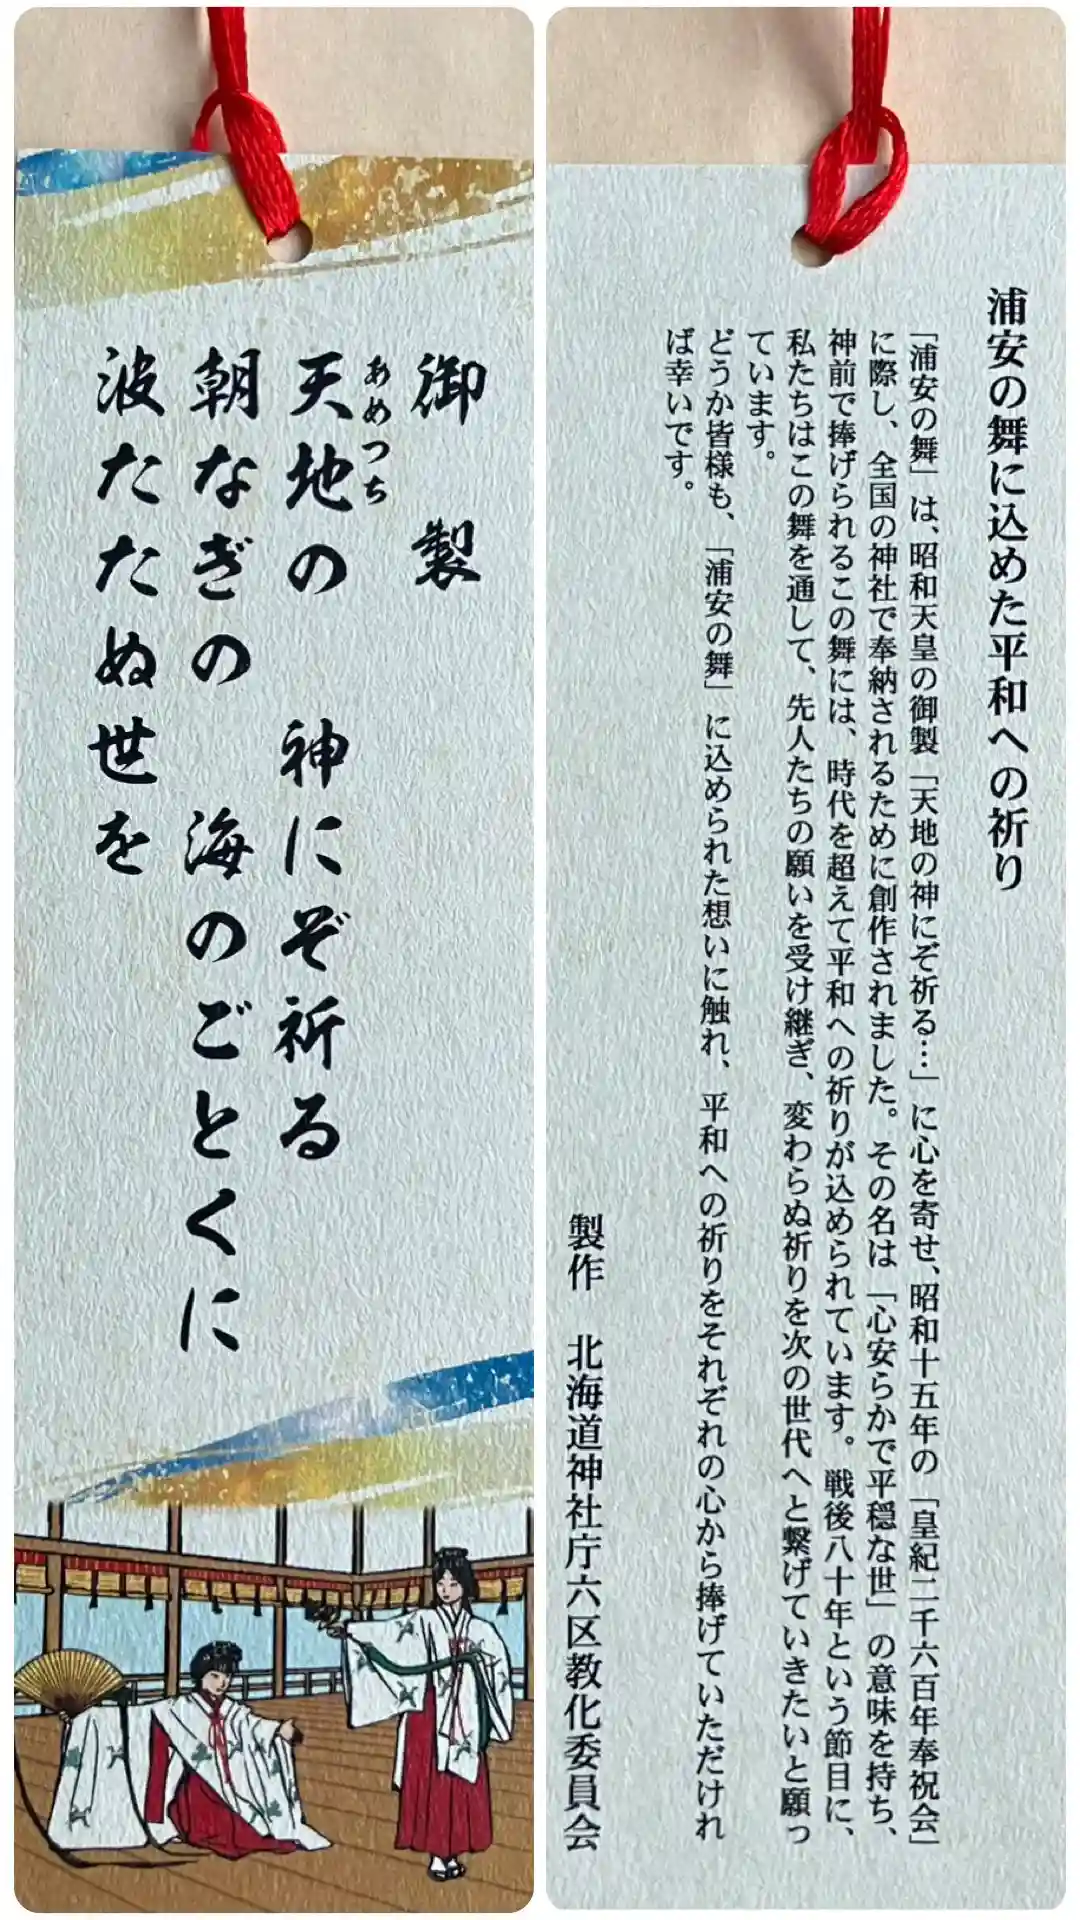 御製
天地の 神にぞ祈る
あめつち
朝なぎの 海のごとくに
波たたぬ世を
浦安の舞に込めた平和への祈り
「浦安の舞」は、昭和天皇の御製「天地の神にぞ祈る…」に心を寄せ、昭和十五年の「皇紀二千六百年奉祝会」
に際し、全国の神社で奉納されるために創作されました。その名は「心安らかで平穏な世」の意味を持ち、
神前で捧げられるこの舞には、時代を超えて平和への祈りが込められています。戦後八十年という節目に、
私たちはこの舞を通して、先人たちの願いを受け継ぎ、変わらぬ祈りを次の世代へと繋げていきたいと願っ
ています。
どうか皆様も、「浦安の舞」に込められた想いに触れ、平和への祈りをそれぞれの心から捧げていただけれ
ば幸いです。
製作 北海道神社庁六区教化委員会